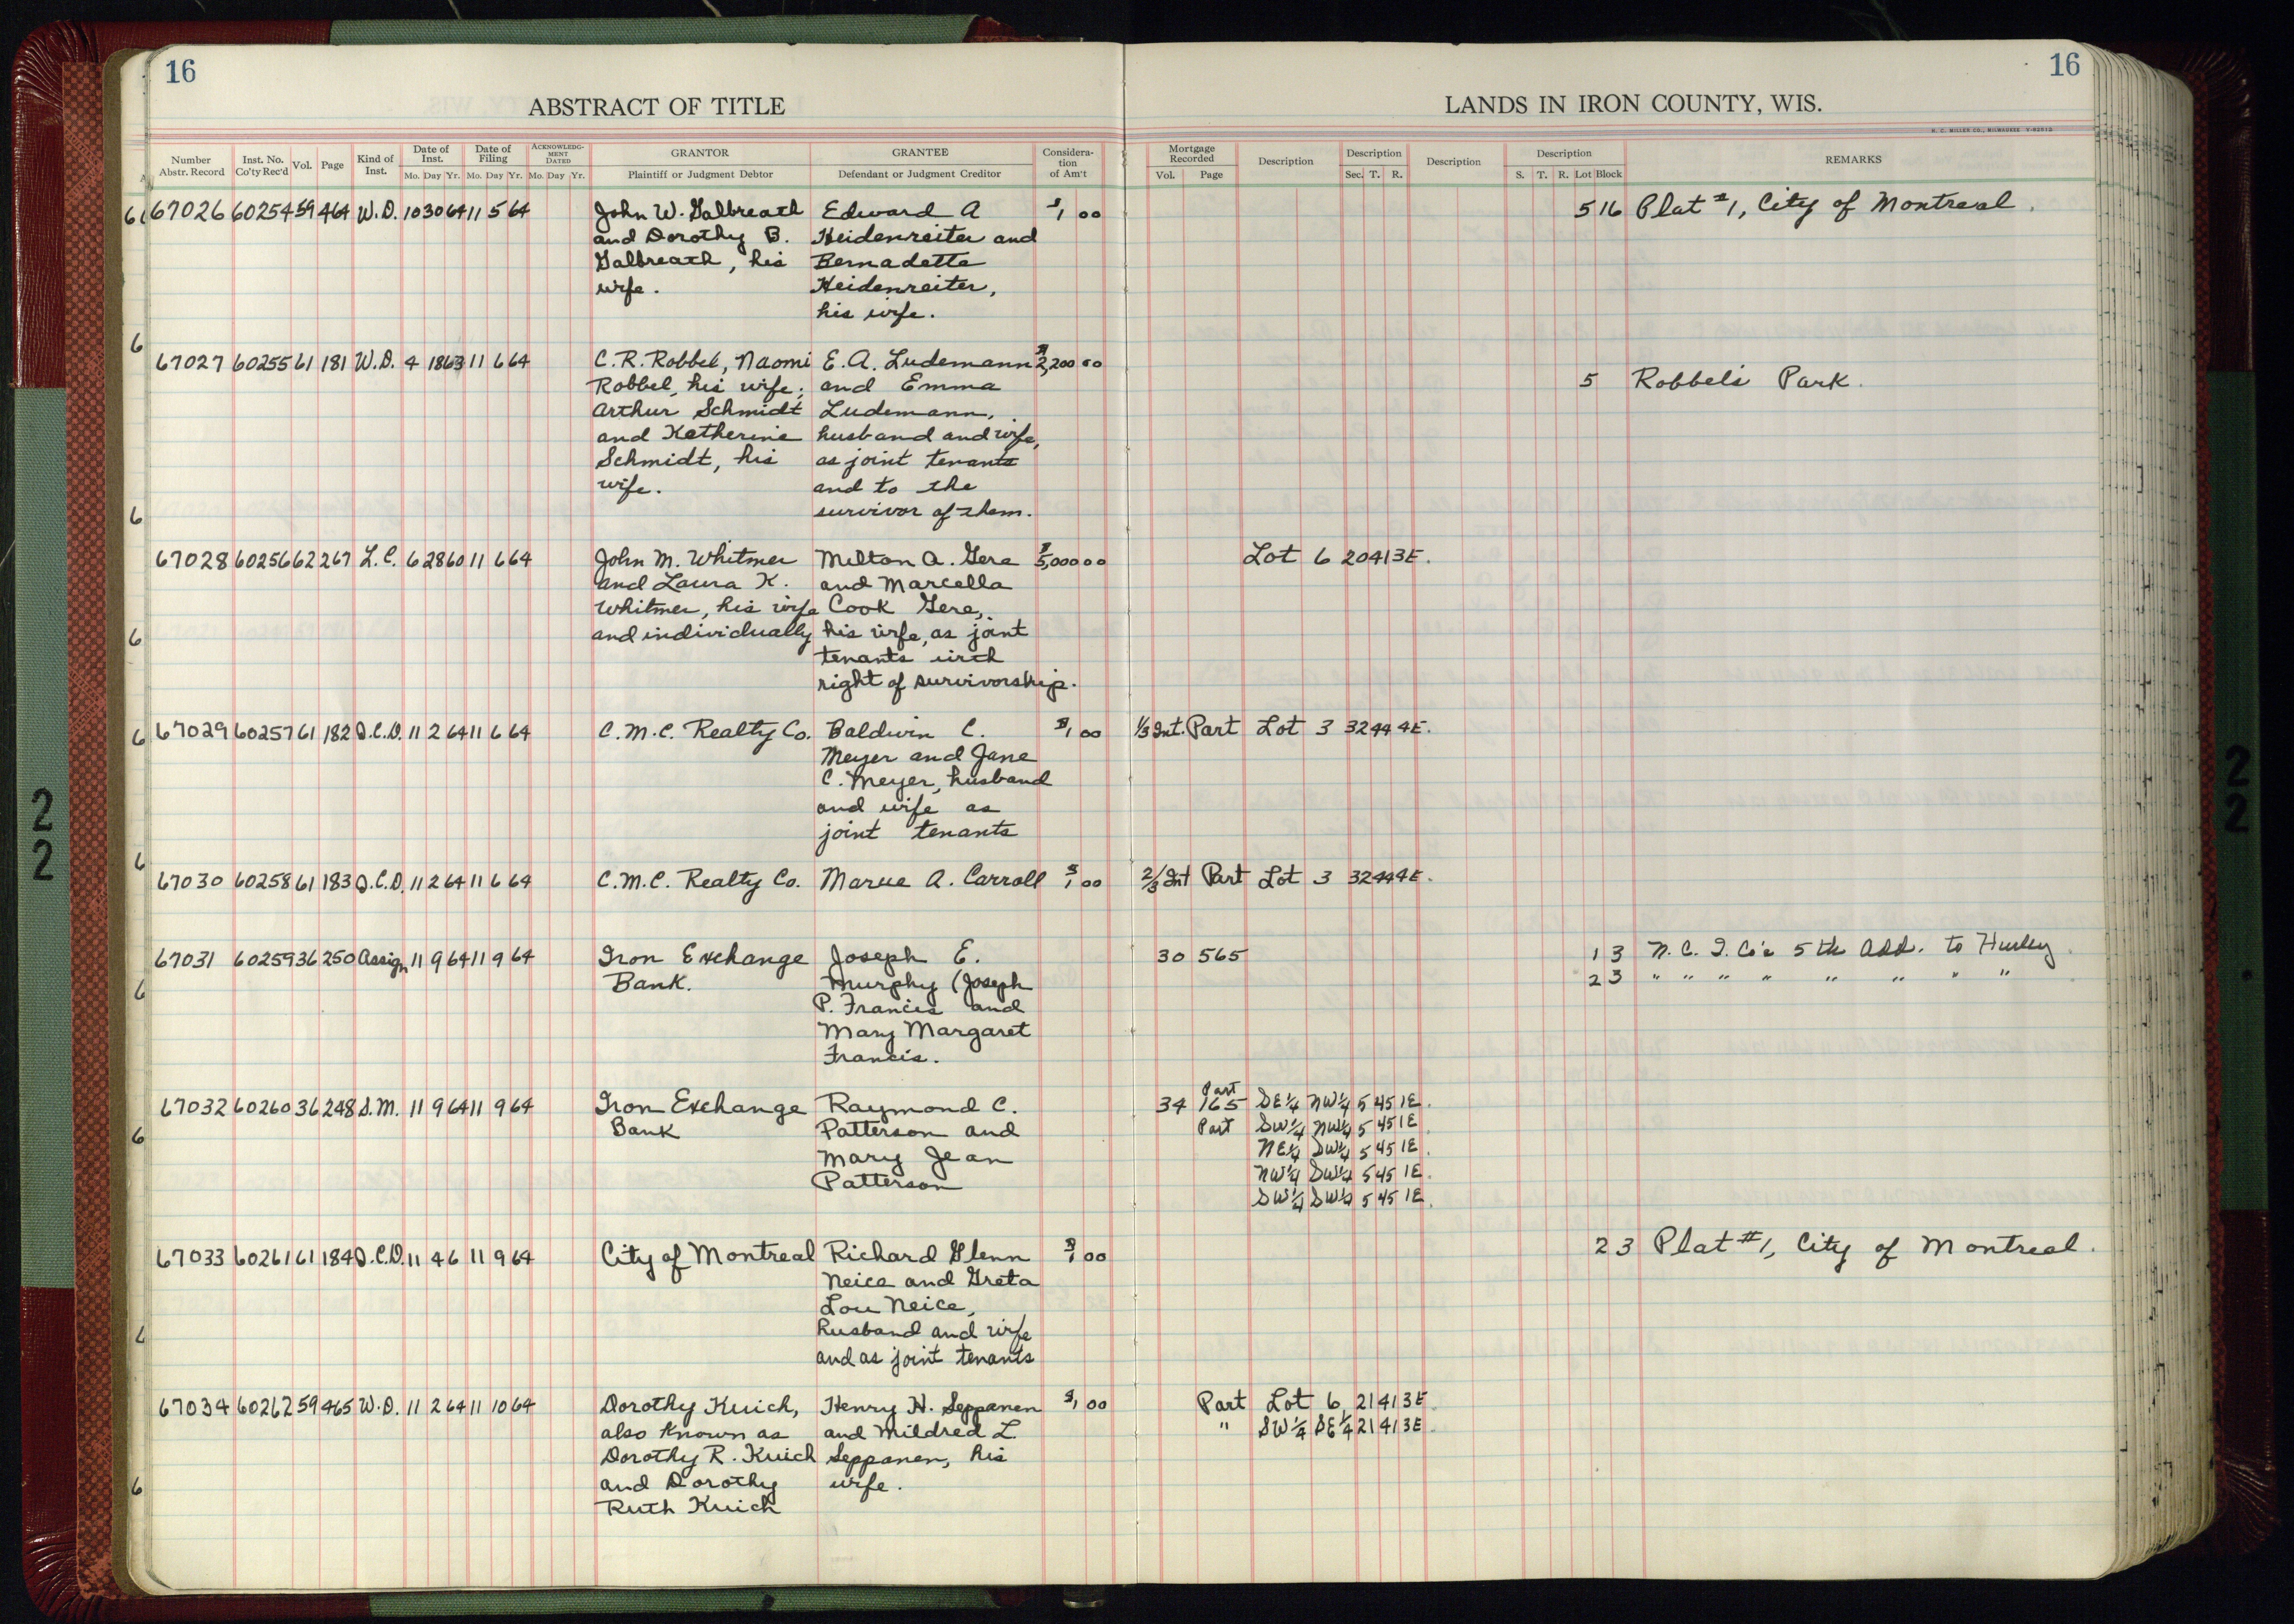 16
16
ABSTRACT OF TITLE
LANDS IN IRON COUNTY, WIS.
H. C. MILLER CO., MILWAUKEE
Number Abstr. Record Inst. No. Co'ty Rec'd Vol. Page Kind of Inst. Date of Inst. Mo. Day Yr. Date of Filing Mo. Day Yr. ACKNOWLEDGMENT DATED Mo. Day Yr. GRANTOR Plaintiff or Judgment Debtor GRANTEE Defendant or Judgment Creditor Consideration of Am't Mortgage Recorded Vol. Page Description Description Sec. T. R. Description Description S. T. R. Lot Block REMARKS
67026 60254 59 464 W.D. 10 30 64 11 5 64 John W. Galbreath Edward A $1 00 5 16 Plat #1, City of Montreal.
and Dorothy B. Heidenreiter and
Galbreath, his Bernadette
wife. Heidenreiter,
his wife.
67027 60255 61 181 W.D. 4 18 63 11 6 64 C.R. Robbel, Naomi E.A. Ludemann $2,200 00
Robbel, his wife; and Emma 5 Robbel's Park.
Arthur Schmidt Ludemann,
and Katherine husband and wife,
Schmidt, his as joint tenants
wife. and to the
survivor of them.
67028 60256 62 267 L.C. 6 28 60 11 6 64 John M. Whitmer Milton A. Gere $5,000 00 Lot 6 20 41 3E.
and Laura K. and Marcella
Whitmer, his wife Cook Gere,
and individually his wife, as joint
tenants with
right of survivorship.
67029 60257 61 182 Q.C.D. 11 2 64 11 6 64 C.M.C. Realty Co. Baldwin C. $1 00 1/3 Int. Part Lot 3 32 44 4E.
Meyer and Jane
C. Meyer, husband
and wife as
joint tenants
67030 60258 61 183 Q.C.D. 11 2 64 11 6 64 C.M.C. Realty Co. Marue A. Carroll $1 00 2/3 Int Part Lot 3 32 44 4E.
67031 60259 36 250 Assign 11 9 64 11 9 64 Iron Exchange Joseph E. 30 565 1 3 N.C.I. Co's 5th Add. to Hurley.
Bank. Murphy (Joseph 2 3 " " " " " " " "
P. Francis and
Mary Margaret
Francis.
67032 60260 36 248 S.M. 11 9 64 11 9 64 Iron Exchange Raymond C. 34 165 Part SE¼ NW¼ 5 45 1E.
Bank Patterson and Part SW¼ NW¼ 5 45 1E.
Mary Jean NE¼ SW¼ 5 45 1E.
Patterson NW¼ SW¼ 5 45 1E.
SW¼ SW¼ 5 45 1E.
67033 60261 61 184 Q.C.D. 11 4 6 11 9 64 City of Montreal Richard Glenn $1 00 2 3 Plat #1, City of Montreal.
Neice and Greta
Lou Neice,
husband and wife
and as joint tenants
67034 60262 59 465 W.D. 11 2 64 11 10 64 Dorothy Kuich, Henry H. Seppanen $1 00 Part Lot 6, 21 41 3E
also known as and Mildred L. " SW¼ SE¼ 21 41 3E.
Dorothy R. Kuich Seppanen, his
and Dorothy wife.
Ruth Kuich
22
22